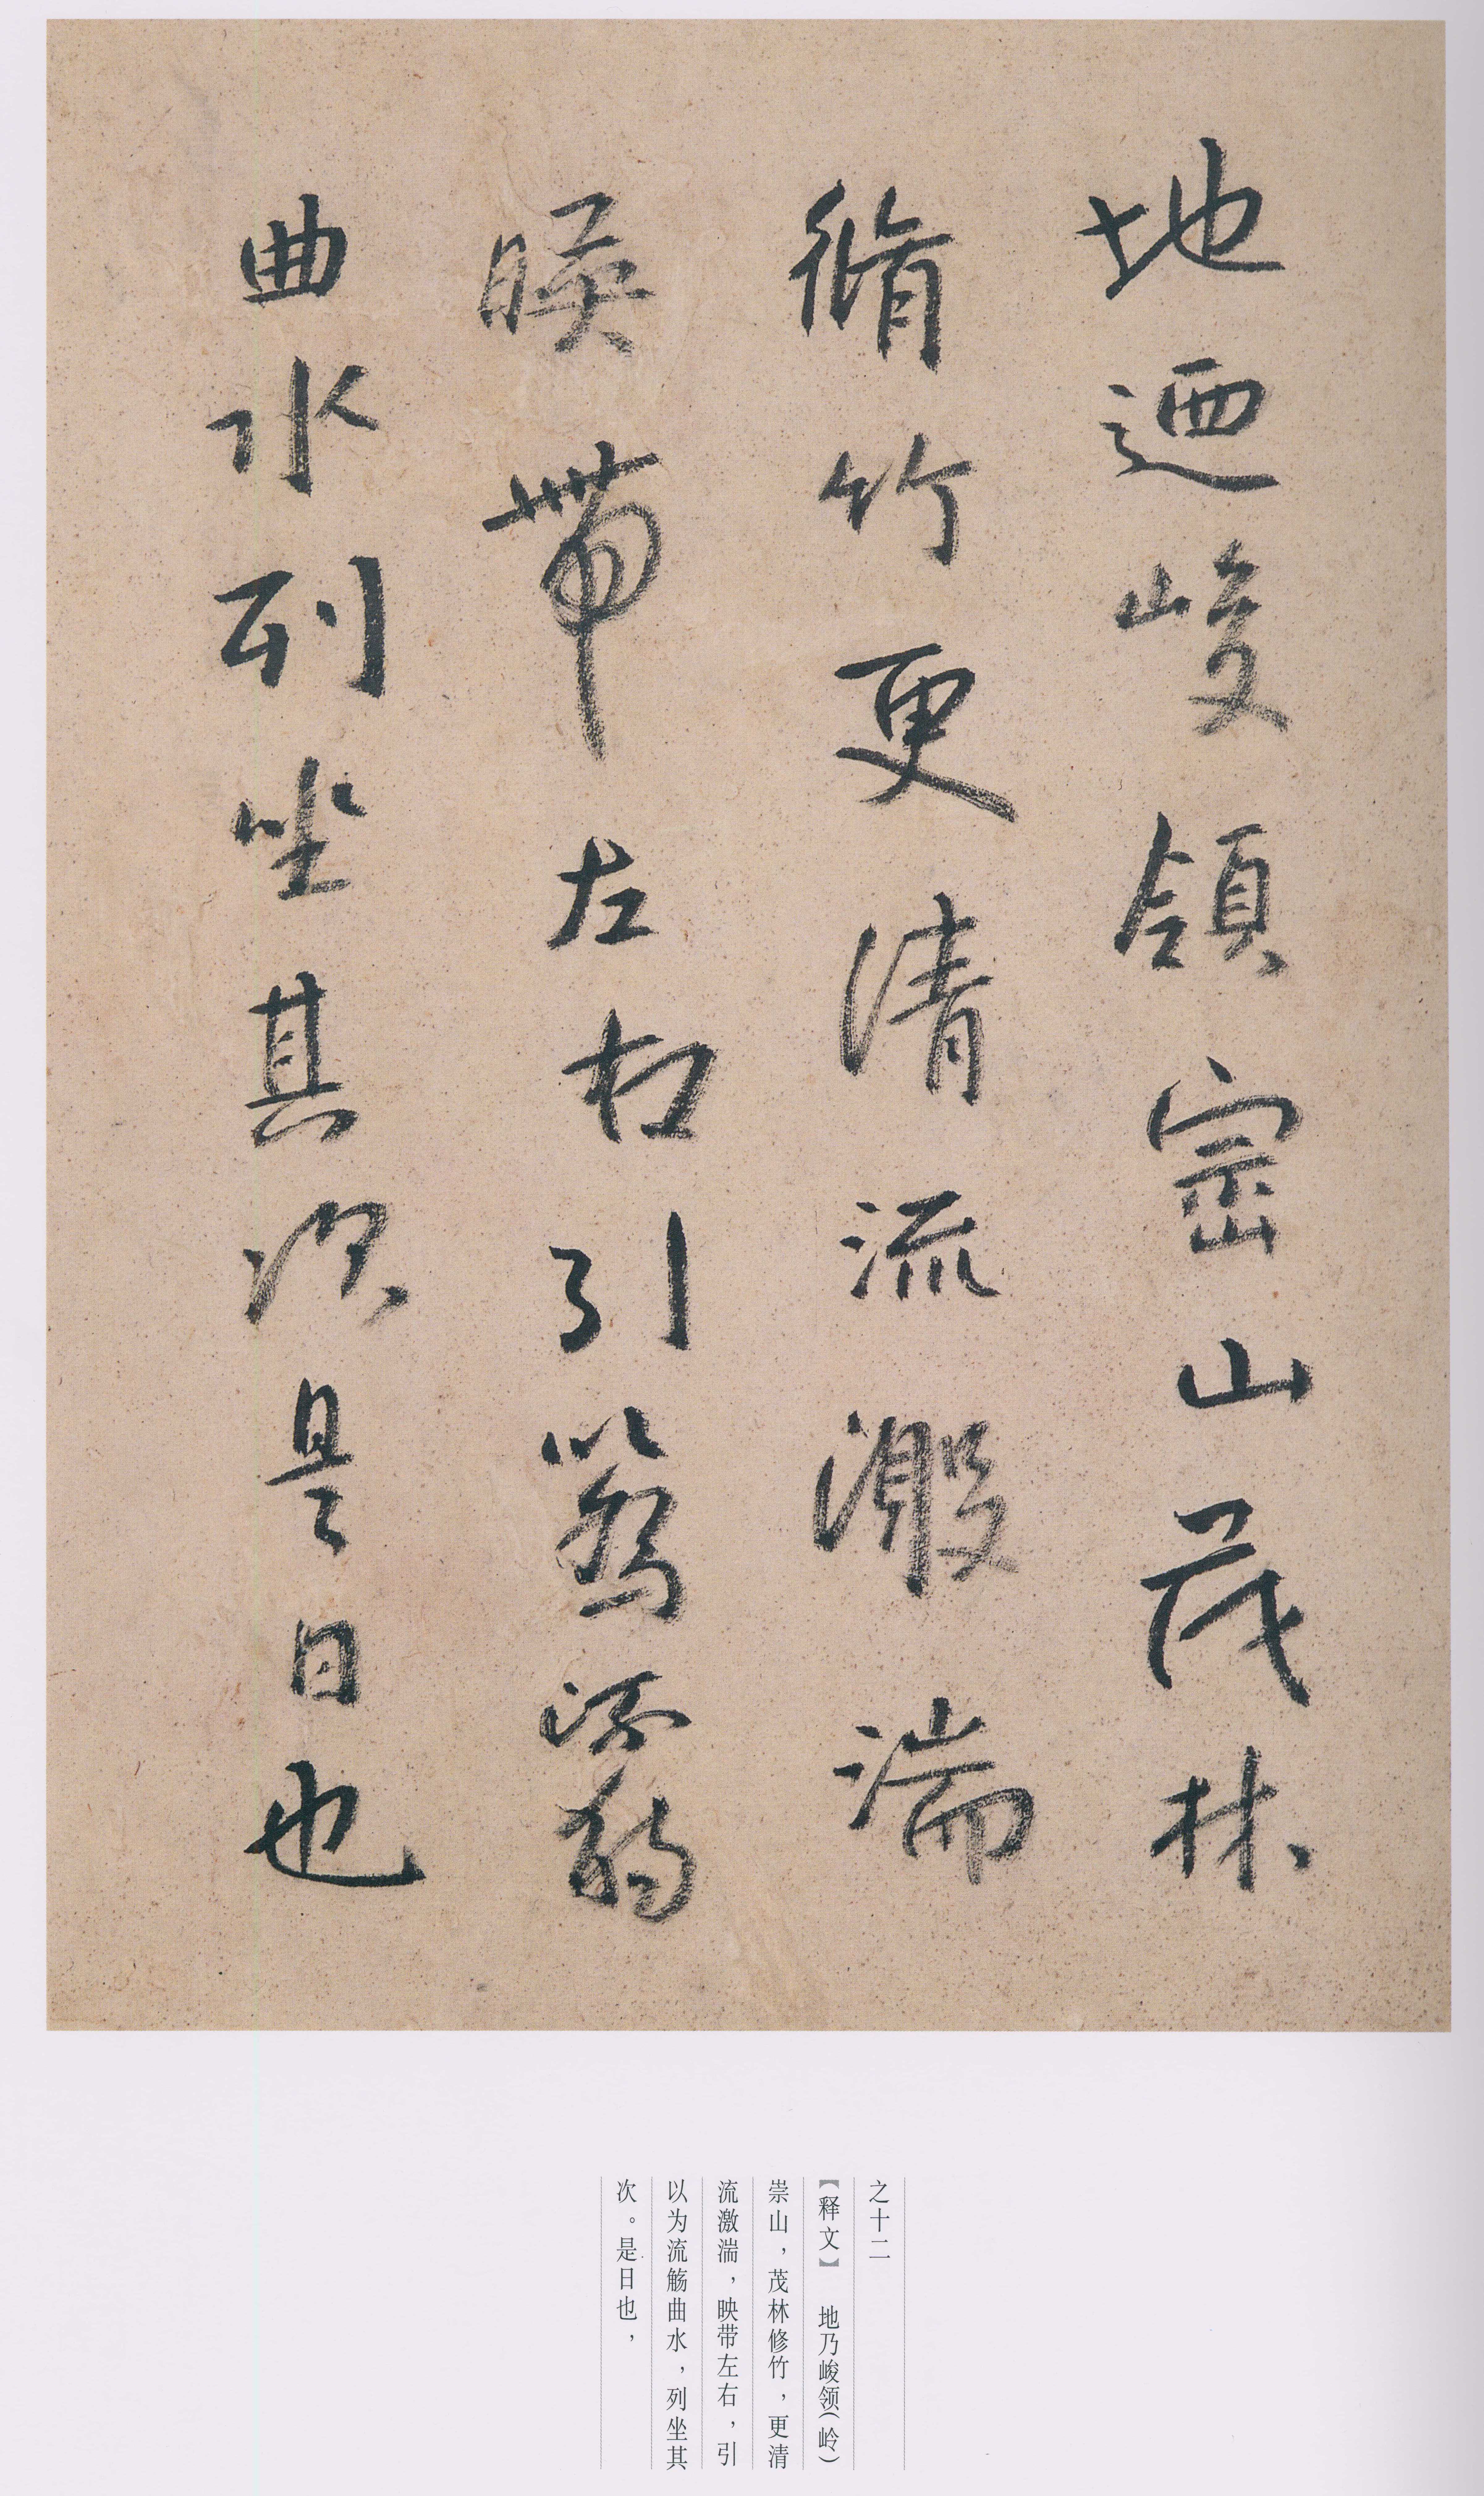 地迺峻領崇山茂林
脩竹更清流激湍
暎帶左右引以為流觴
曲水列坐其次是日也
之十二
【释文】 地乃峻领(岭)
崇山，茂林修竹，更清
流激湍，映带左右，引
以为流觞曲水，列坐其
次。是日也，